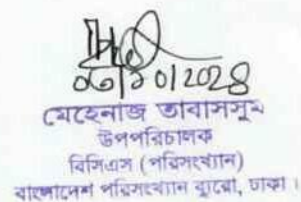 মেহেনাজ তাবাসসুম
উপপরিচালক
বিসিএস (পরিসংখ্যান)
বাংলাদেশ পরিসংখ্যান ব্যুরো, ঢাকা।